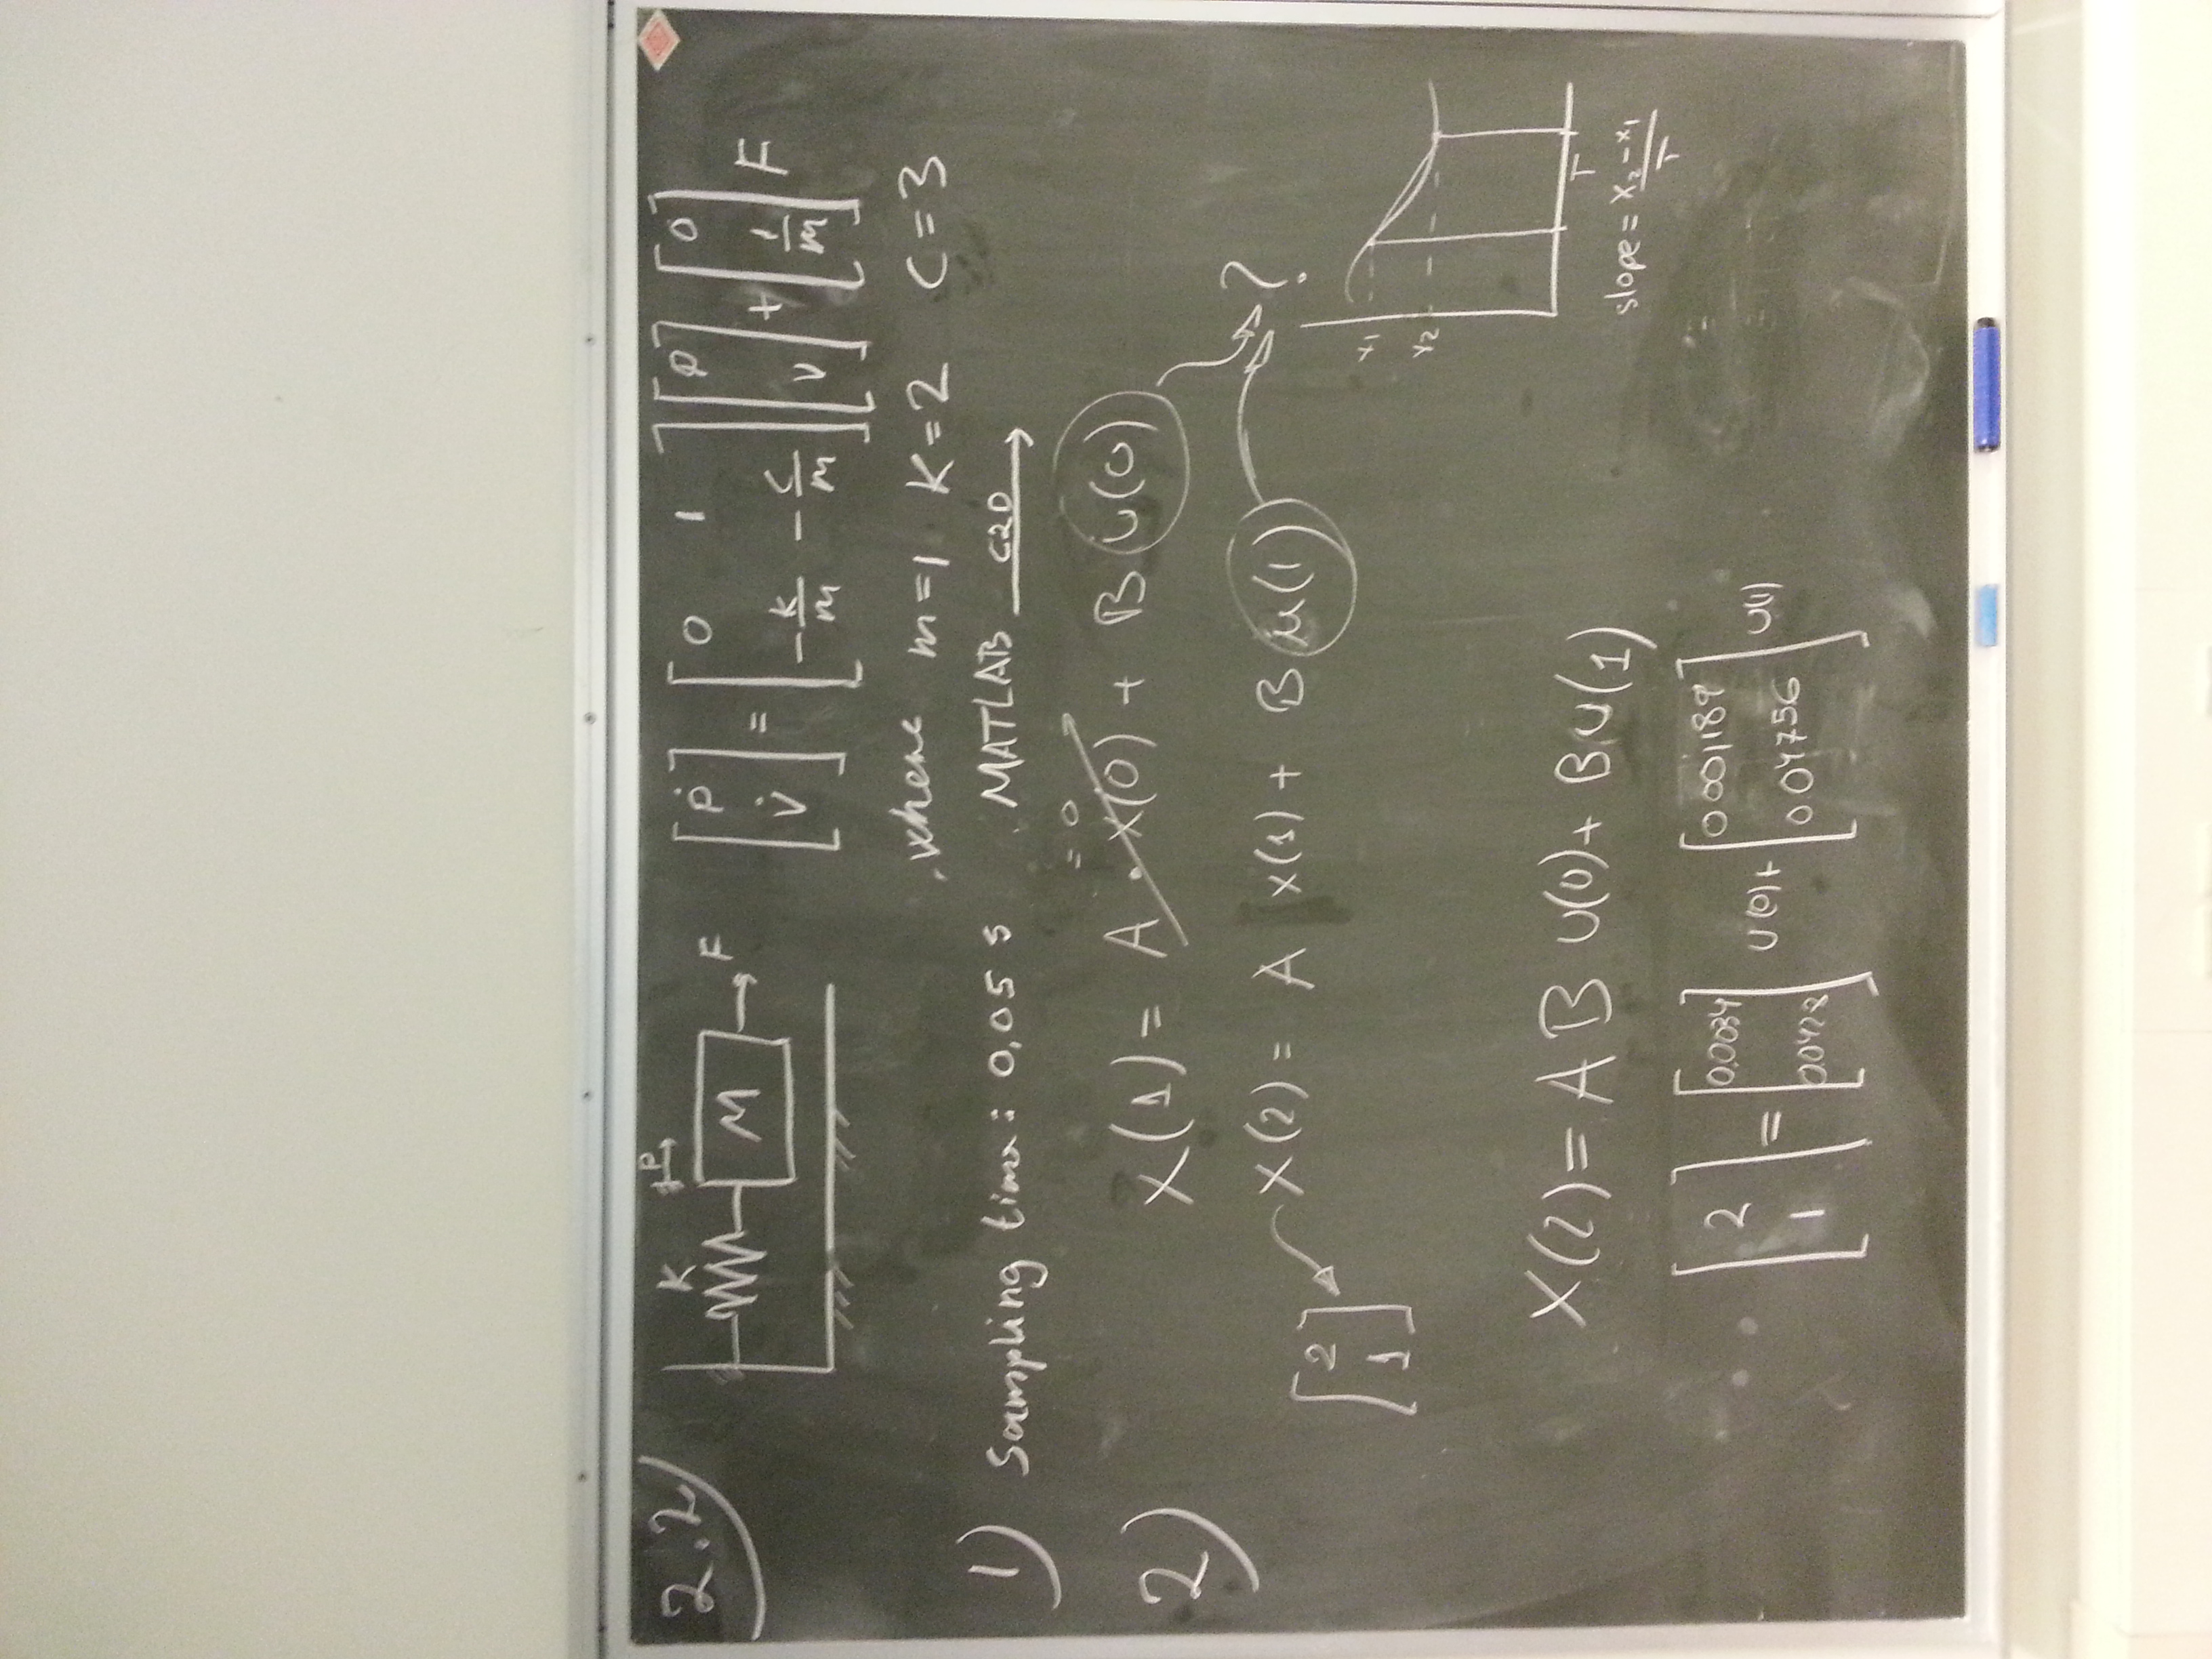 2.2)
K
P
M
F
[ṗ; v̇] = [0 1; -K/m -C/m] [p; v] + [0; 1/m] F
, where m=1 K=2 C=3
1) Sampling time: 0,05 s . MATLAB C2D →
= 0
2) X(1) = A · X(0) + B U(0)
?
X(2) = A X(1) + B u(1)
[2; 1]
x1
x2
T
slope = (x2 - x1)/T
X(2) = A B U(0) + B U(1)
[2; 1] = [0.0034; 0.0428] U(0) + [0.001189; 0.04756] U(1)